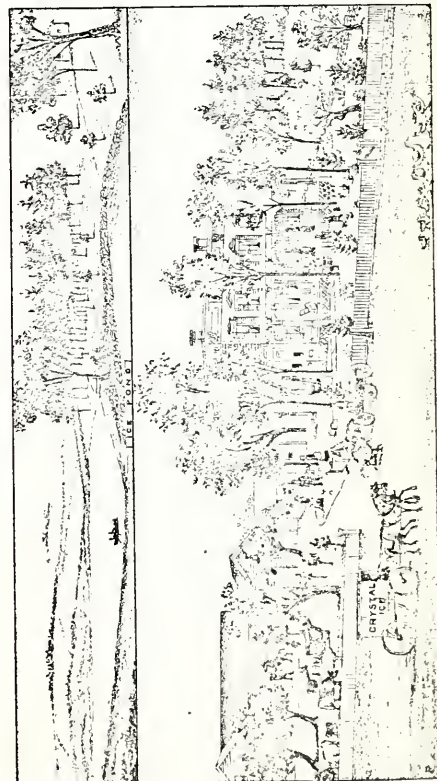 ICE POND
CRYSTAL
ICE